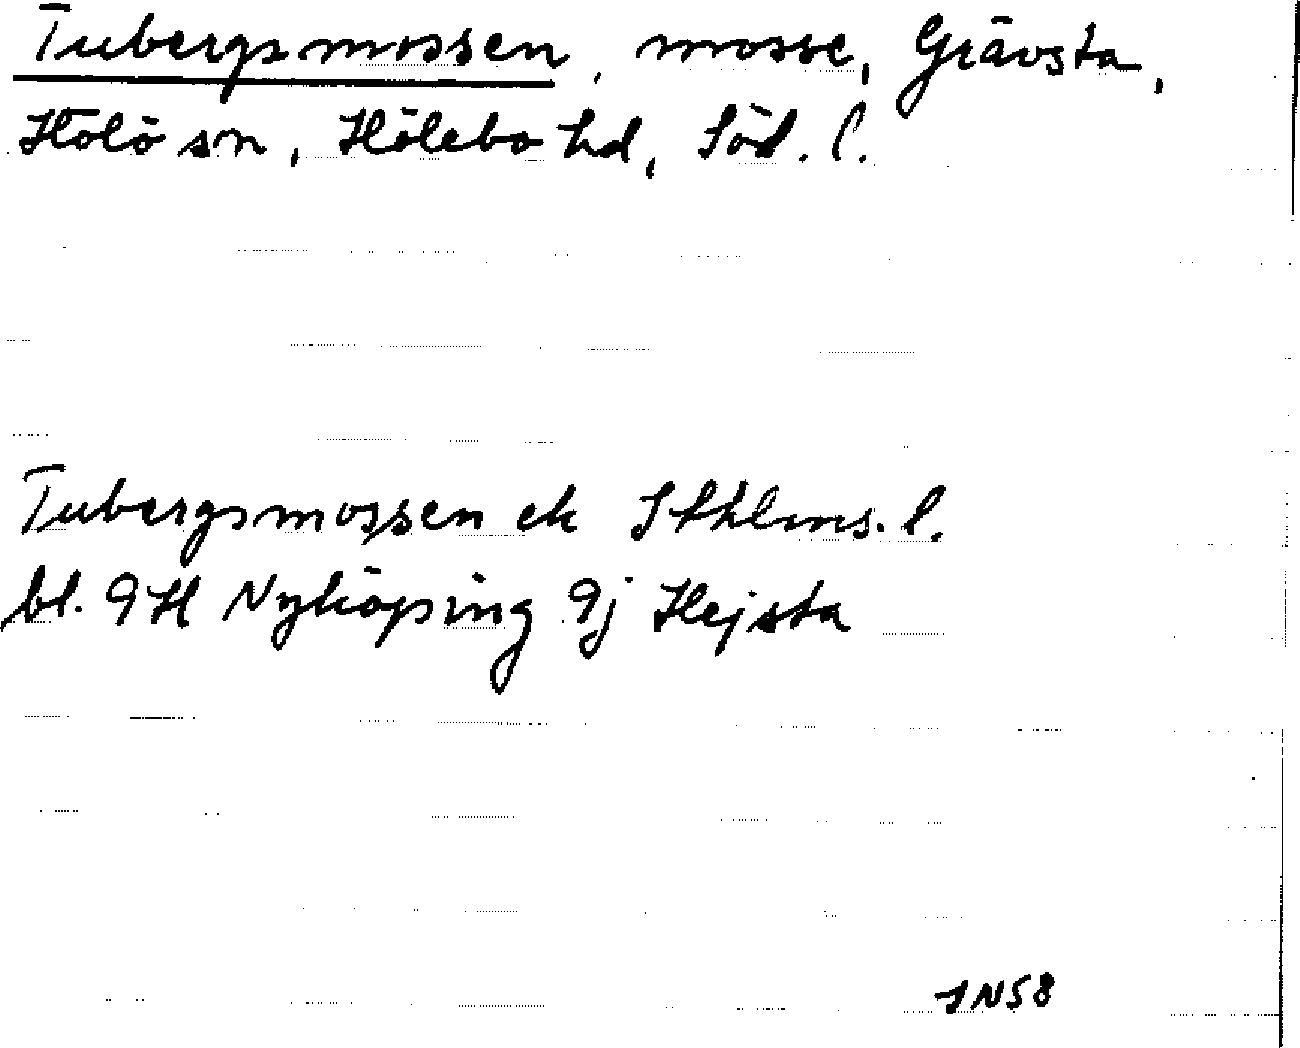 Tubergsmossen, mosse, Grävsta,
Hölö sn, Hölebo hd, Söd. l.
Tubergsmossen ek Sthlms. l.
bl. 9H Nyköping 9j Hejsta
JN58